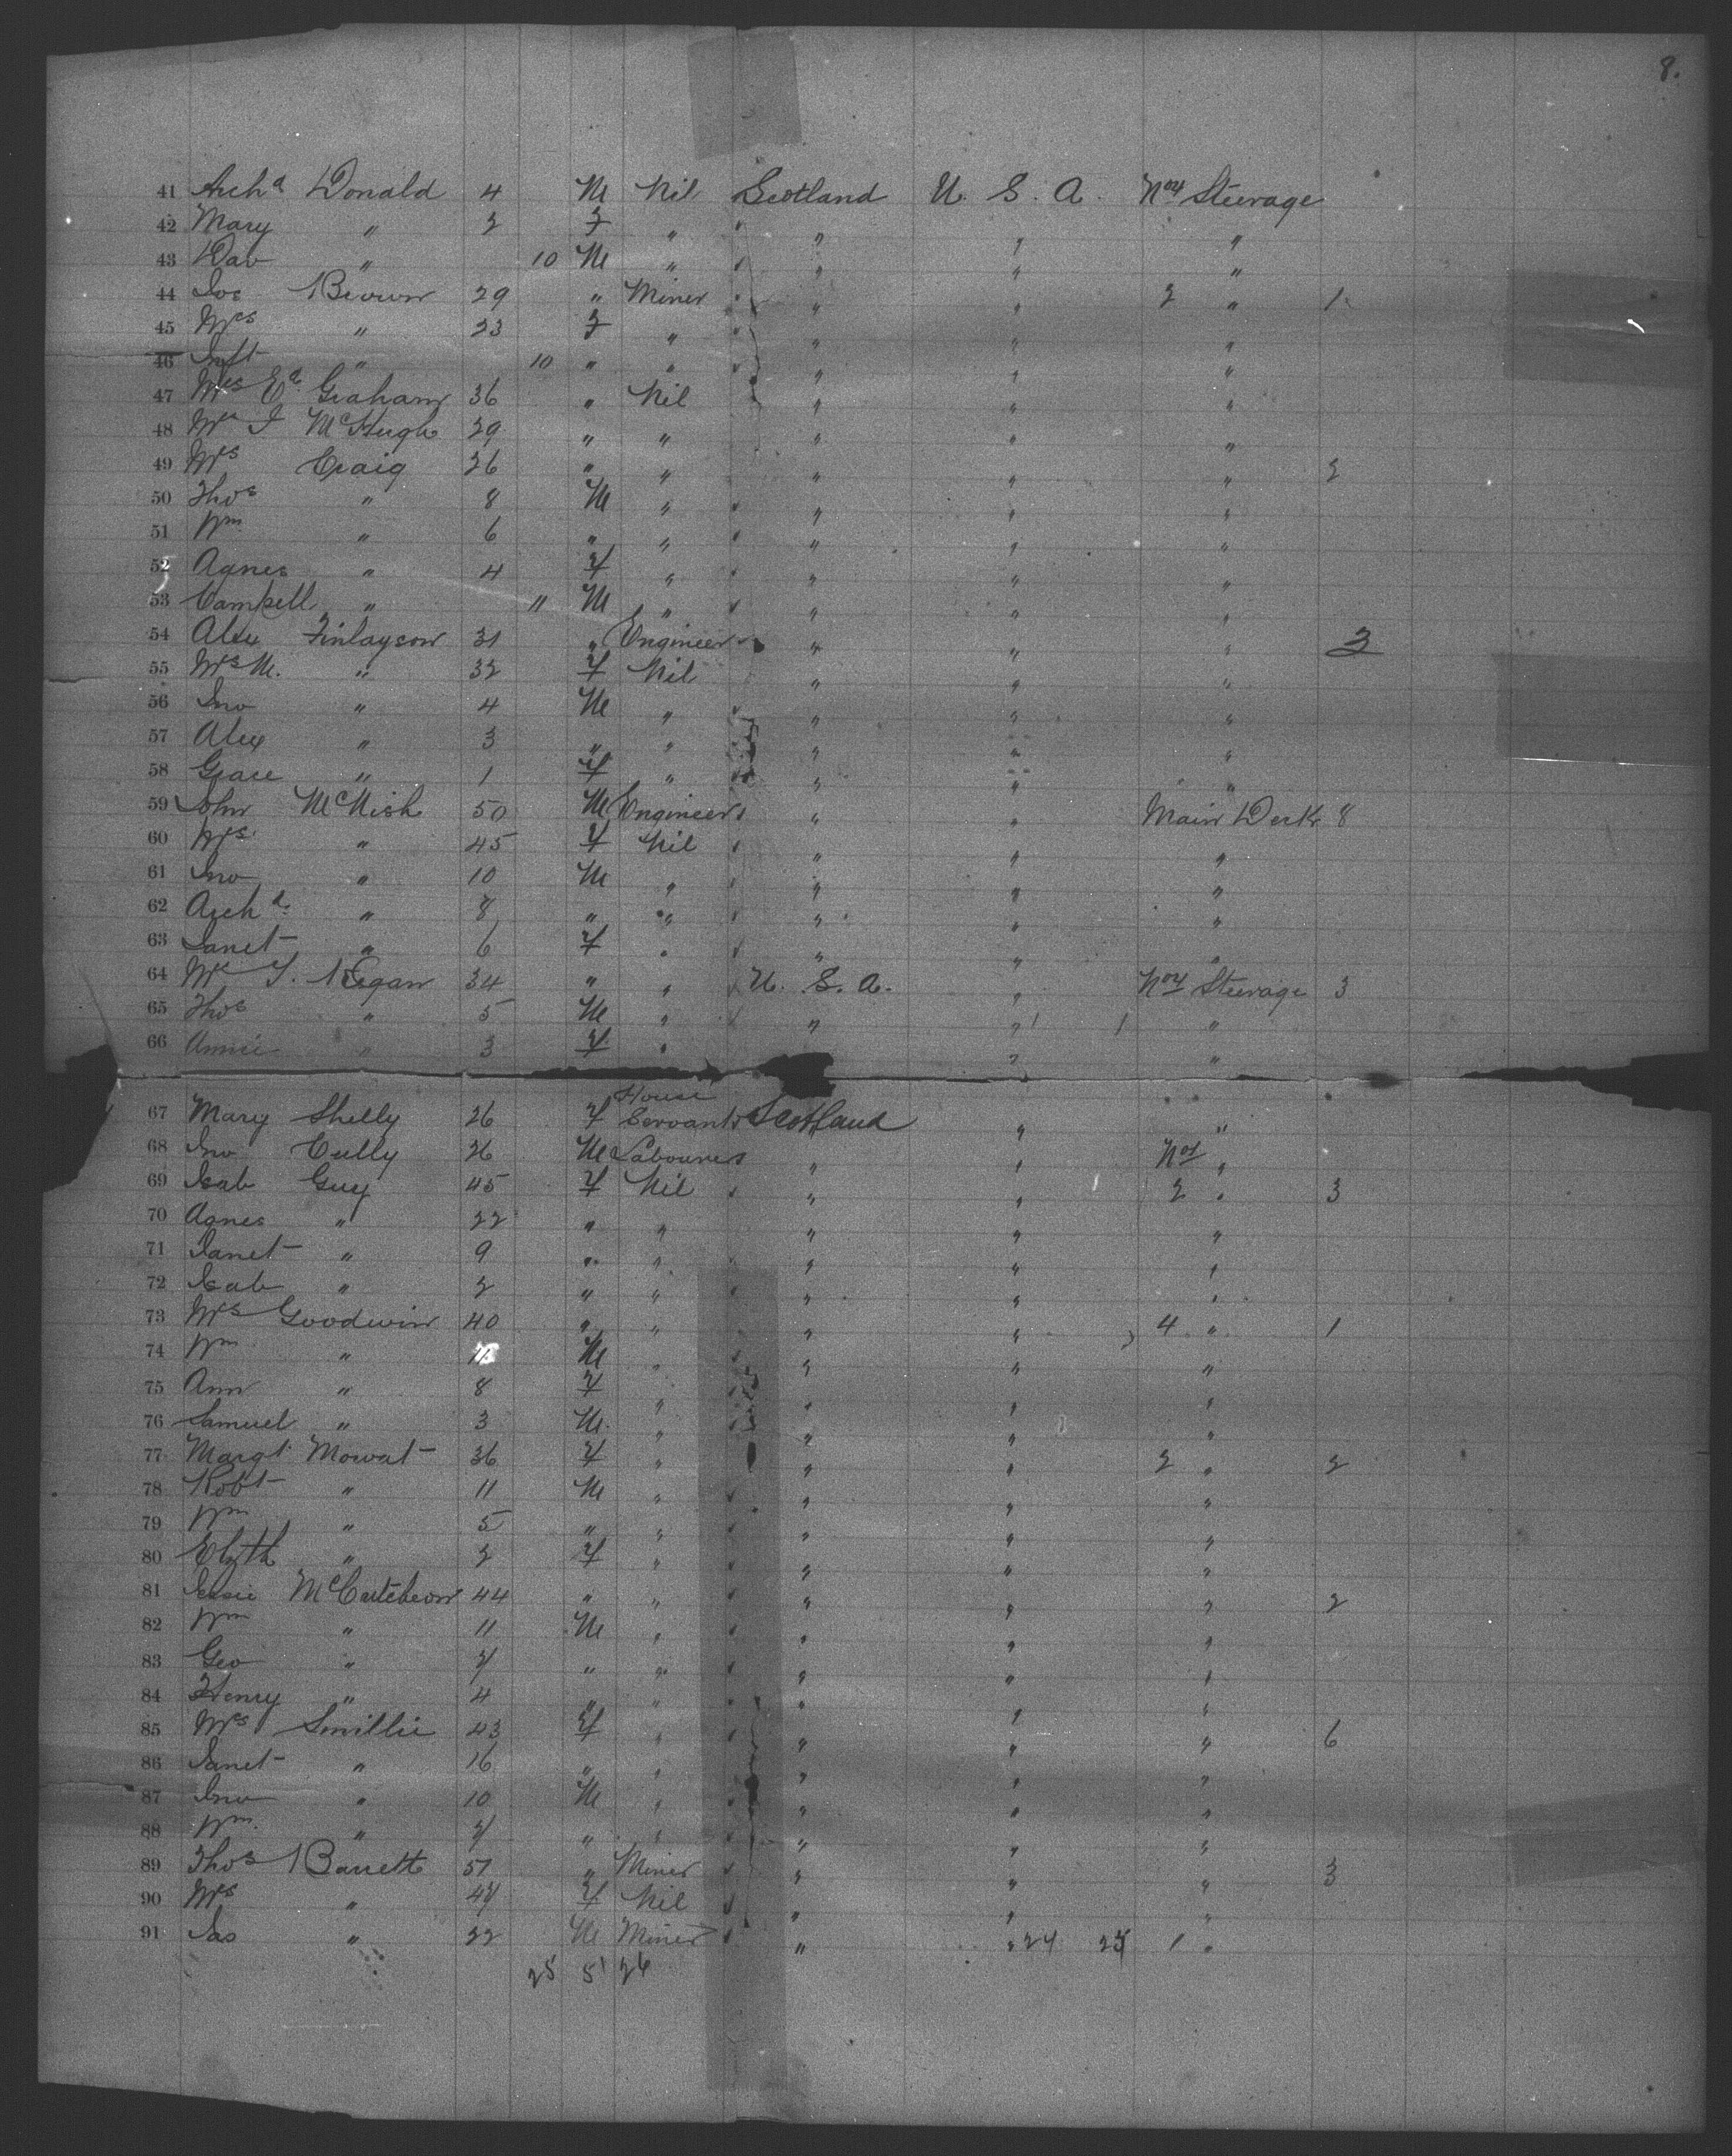 8.
41 Archd Donald 4 M Nil Scotland U. S. A. No 1 Steerage
42 Mary " 2 F " " " "
43 Dav " 10 M " " " "
44 Jos Brown 29 " Miner " " 2 " 1
45 Mrs " 23 F " " " "
46 Inft " 10 " " " " "
47 Mrs Ed. Graham 36 " Nil " " "
48 Mrs J McHugh 29 " " " " "
49 Mrs Craig 26 " " " " " 2
50 Thos " 8 M " " " "
51 Wm " 6 " " " " "
52 Agnes " 4 F " " " "
53 Campell " 11 M " " " "
54 Alex Finlayson 31 " Engineer " " " 3
55 Mrs M. " 32 F Nil " " "
56 Jno " 4 M " " " "
57 Alex " 3 " " " " "
58 Grace " 1 F " " " "
59 John McNish 50 M Engineer " " Main Deck 8
60 Mrs " 45 F Nil " " "
61 Jno " 10 M " " " "
62 Archd. " 8 " " " " "
63 Janet " 6 F " " " "
64 Mrs J. Regan 34 " " U. S. A. " No 1 Steerage 3
65 Thos " 5 M " " " 1 1 "
66 Annie " 3 F " " "
67 Mary Shelly 26 F House Servant Scotland " "
68 Jno Cully 26 M Labourer " " No 1 "
69 Isab Guy 45 F Nil " " 2 " 3
70 Agnes " 22 " " " " "
71 Janet " 9 " " " " "
72 Isab " 2 " " " " "
73 Mrs Goodwin 40 " " " " 4 " 1
74 Wm " M " " " "
75 Ann " 8 F " " " "
76 Samuel " 3 M. " " " "
77 Margt Mowat 36 F " " " 2 " 2
78 Robt " 11 M " " " "
79 Wm " 5 " " " " "
80 Elizth " 2 F " " " "
81 Jessie McCutcheon 44 " " " " " 2
82 Wm " 11 M " " " "
83 Geo " 7 " " " " "
84 Henry " 4 " " " " "
85 Mrs Smillie 43 F " " " " 6
86 Janet " 16 " " " " "
87 Jno " 10 M " " " "
88 Wm. " 7 " " " " "
89 Thos Barrett 51 " Miner " " " 3
90 Mrs " 47 F Nil " " "
91 Jas " 22 M Miner " " 24 25 1 "
25 51 26